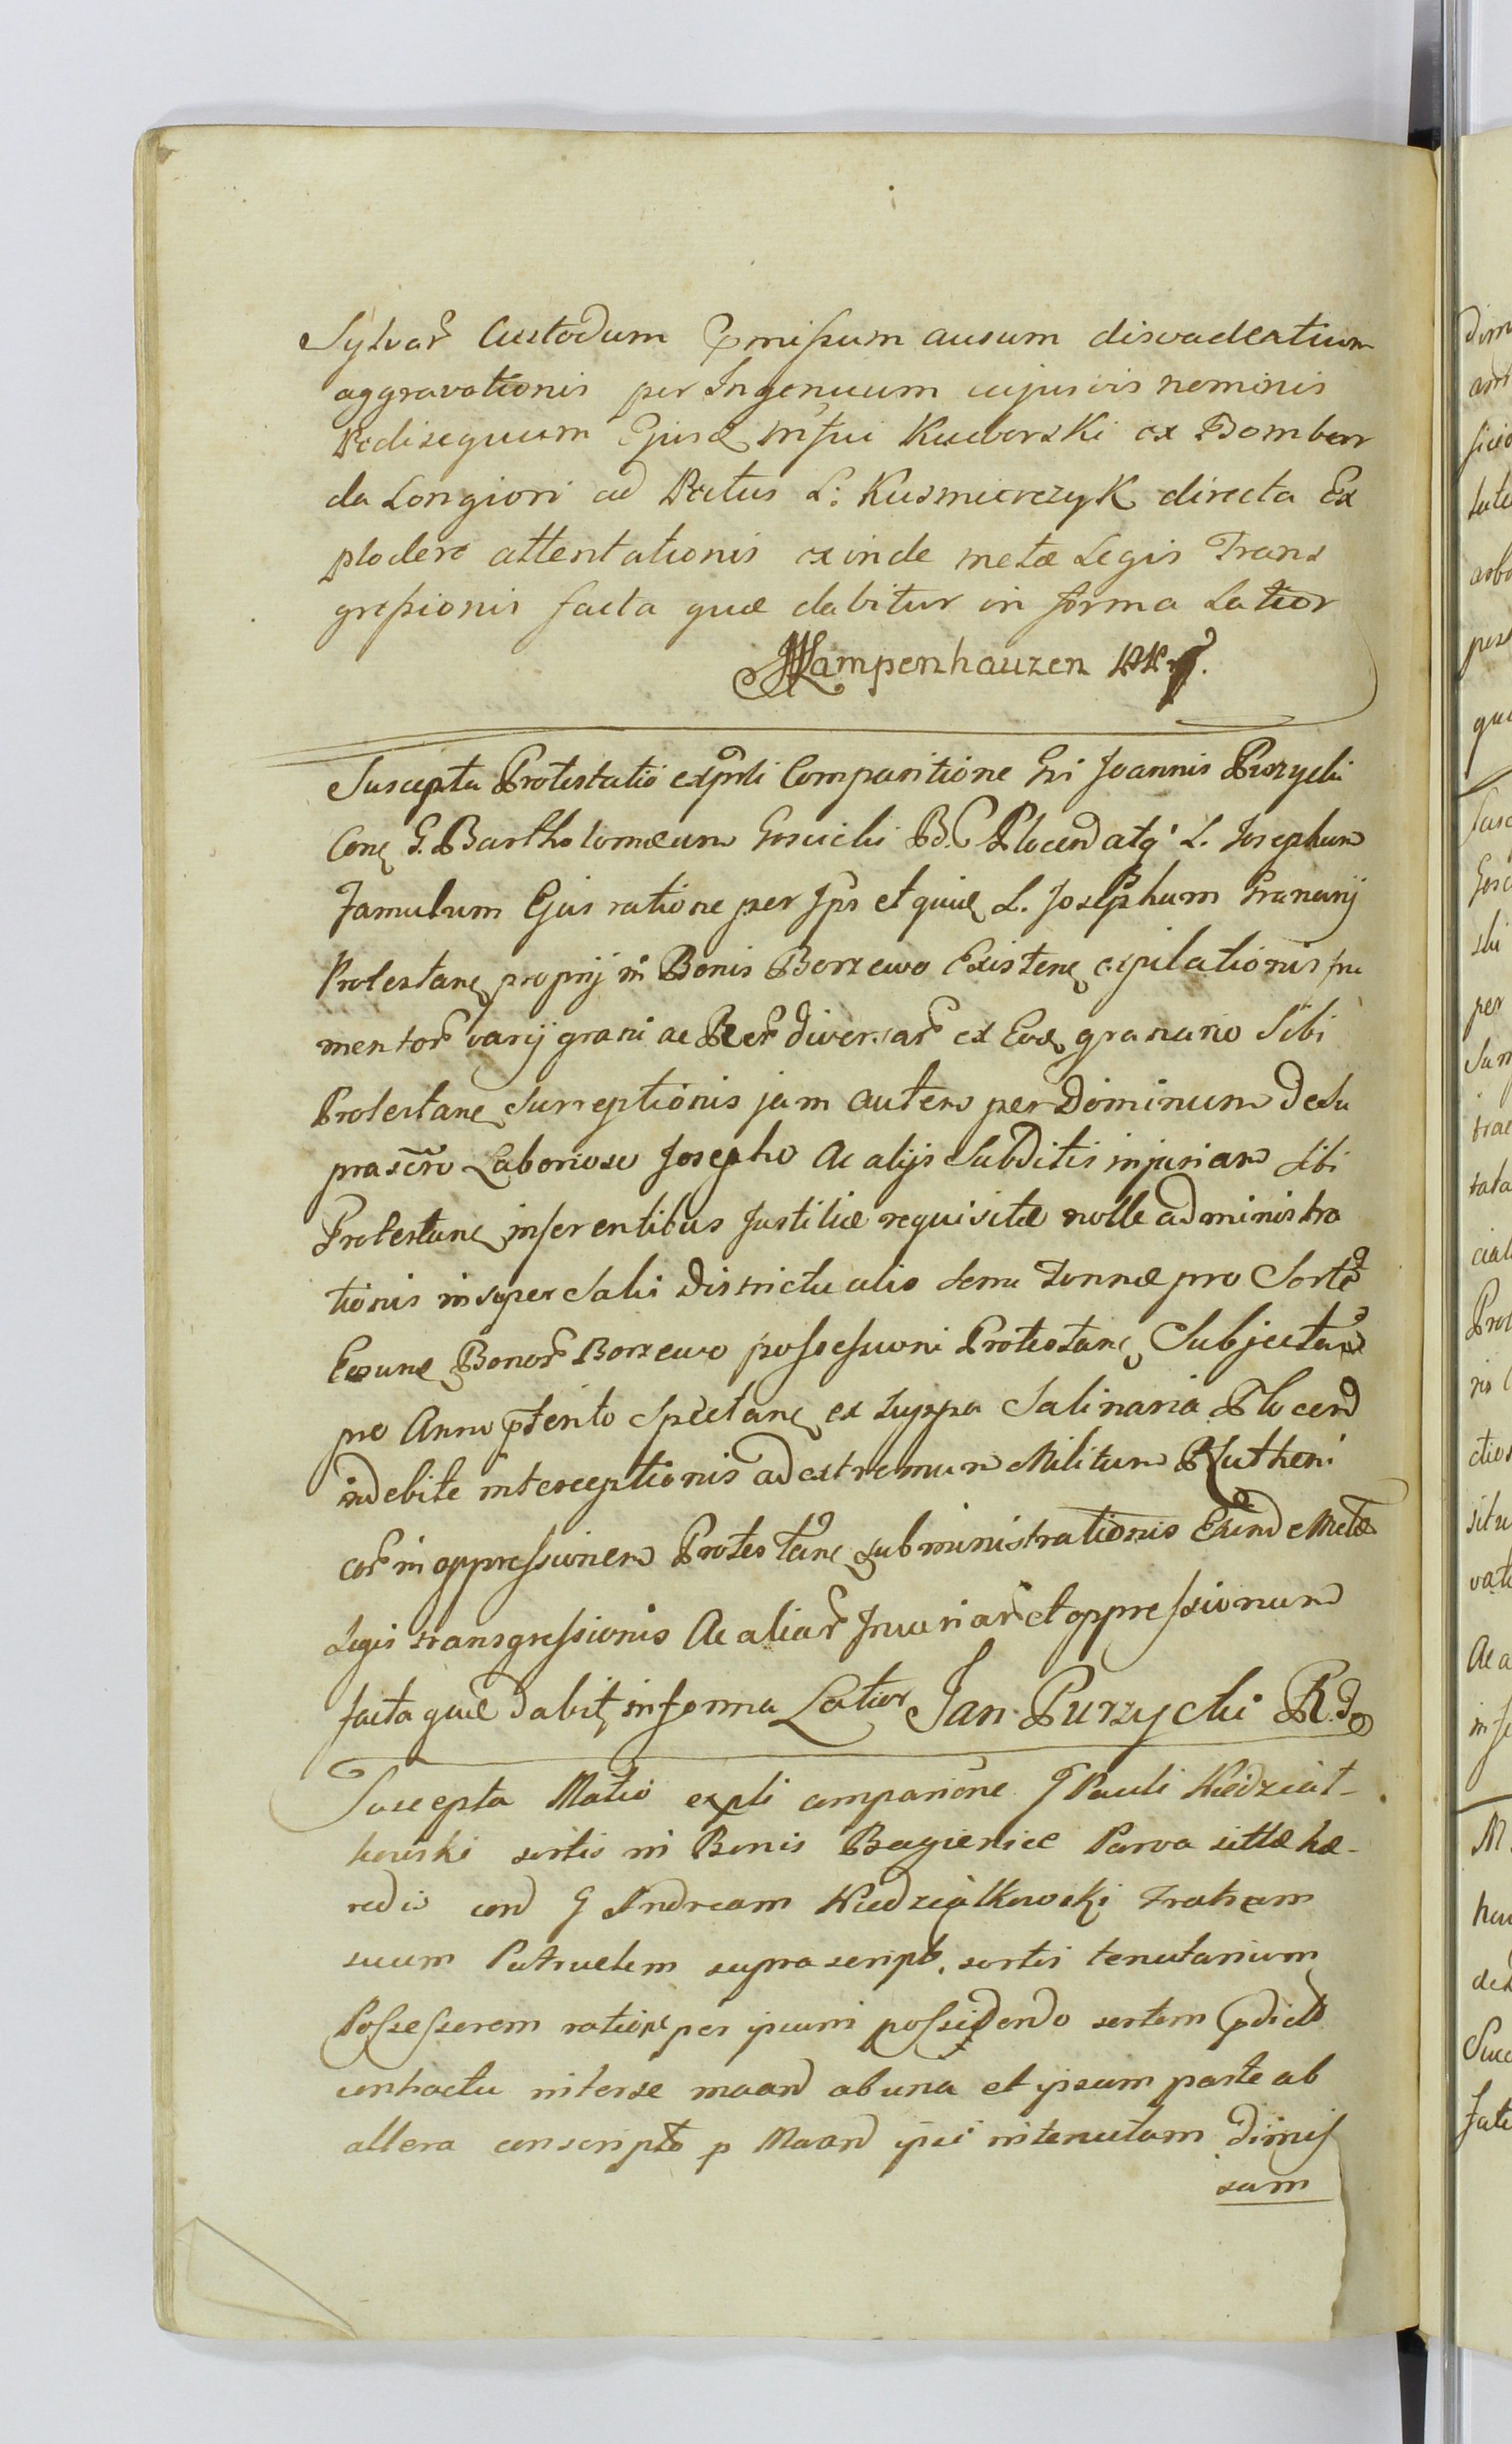 Sylvar Custodum Pmissum ausum disvadentium
aggravationis per Ingenuum cujusvis nominis
Pedisequum Ejusd Kuworski ex Bombar
da Longiori ad Pectus L: Kusmierczyk directa Ex
plodere attentationis exinde metæ Legis Trans
gressionis facta quæ dabitur in forma Latior
Kampenhauzen
Suscepta Protestatio exprti Comparitione Gsi Joannis Purzycki
Conę G. Bartholomæum Goscicki B.C. Plocen atq' L. Josephum
Famulum Ejus ratione per Ips et quidę L. Josephum Granarij
Protestanę proprij in Bonis Borzewo Existenę expilationis fru
mentor varij grani ac Rer diversar ex Eodę granario Sibi
Protestanę surreptionis jam autem per Dominum desu
prascro Laborioso Josepho Ac alijs Subditis injuriam sibi
Protestanę inferentibus Justitiæ requisitæ nolle administra
tionis insuper Salis Districtualis Tonnæ pro Sorte
Bonor Borzewo possessioni Protestanę Subjectar
pro Anno pterito Spectanę ex Suppa Salinaria Plocen
indebite interceptionis ad extremum Militum Rutheni
cor in oppressionem Protestanę subministrationis Exinde Metæ
Legis transgressionis Ac aliar Injuriar et oppressionum
facta quæ dabitę in forma Latior Jan Purzycki
Suscepta Matio expti comparione G Pauli Niedzialt-
kowski sortis in Bonis Bagienice Parva sittæ hæ-
redis con G Andream Niedziałkowski Fratrem
suum Patruelem suprascript. sortis tenutarium
Possessorem ratione per ipsum possidendo sortem pdicto
contractu inter se maan ab una et ipsum parte ab
altera conscripto p Maan ipsi in tenutam dimis
sam